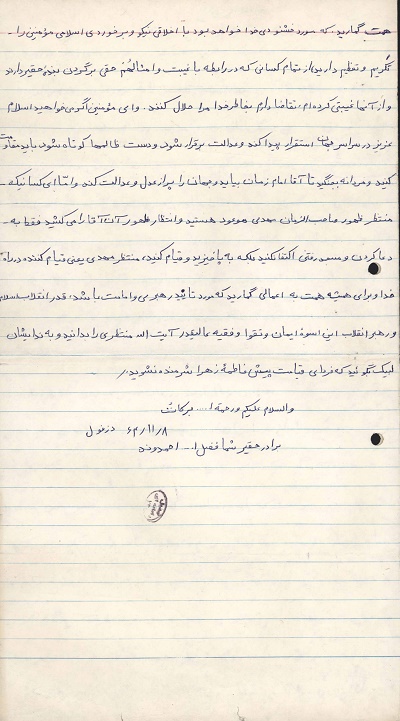 همت بگمارید که مورد خشنودی خدا خواهد بود با اخلاقی نیکو و برخوردی اسلامی مؤمنی را
تکریم و تعظیم دارید از تمام کسانی که در رابطه با غیبت و امثالهم حقی برگردن بنده حقیر دارند
و از آنها غیبتی کرده‌ام، تقاضا دارم بخاطر خدا مرا حلال کنند. و ای مؤمنی اگر می‌خواهید اسلام
عزیز در سراسر جهان استقرار پیدا کند و عدالت برقرار شود و دست ظالمها کوتاه شود باید مقاومت
کنید و مردانه بجنگید تا آقا امام زمان بیاید و جهان را پر از عدل و عدالت کند و اما ای کسانیکه
منتظر ظهور صاحب الزمان مهدی موعود هستید و انتظار ظهور آن آقا را می‌کشید فقط به
دعا کردن و مسجد رفتن اکتفا نکنید بلکه به پا خیزید و قیام کنید، منتظر مهدی یعنی قیام کننده در راه
خدا و برای همیشه همت به اعمالی گمارید که مورد تایید رهبری و امامت باشد، قدر انقلاب اسلامی
و رهبر انقلاب این اسوه ایمان و تقوا و فقیه عالیقدر آیت الله منتظری را بدانید و به ندایشان
لبیک بگوئید که فردای قیامت پیش فاطمه زهرا شرمنده نشوید.
والسلام علیکم و رحمة ا... و برکاته
۶۴/۱۱/۸ دزفول
برادر حقیر شما فضل ا... احمدوند